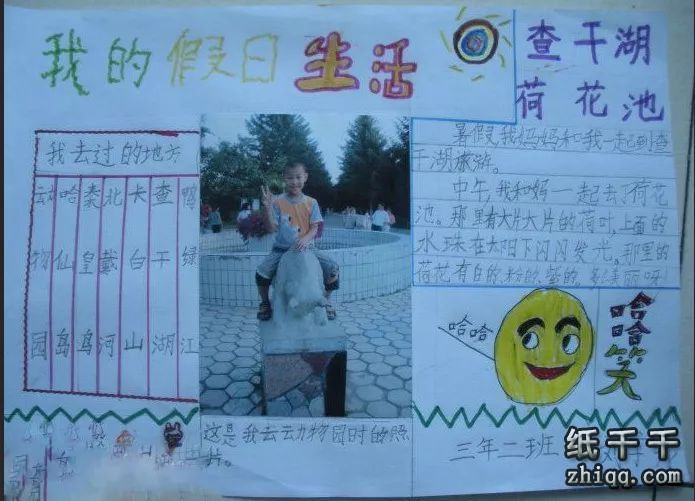 我的假日生活
查干湖
荷花池
我去过的地方
动物园
哈仙岛
秦皇岛
北戴河
长白山
查干湖
鸭绿江
暑假,我妈妈和我一起到查
干湖旅游。
中午,我和妈一起去了荷花
池。那里有大片大片的荷叶,上面的
水珠在太阳下闪闪发光。那里的
荷花有白的、粉的、紫的。多美丽呀!
哈哈
哈哈笑
这是我去动物园时的照
片。
三年二班
纸千千
zhiqq.com